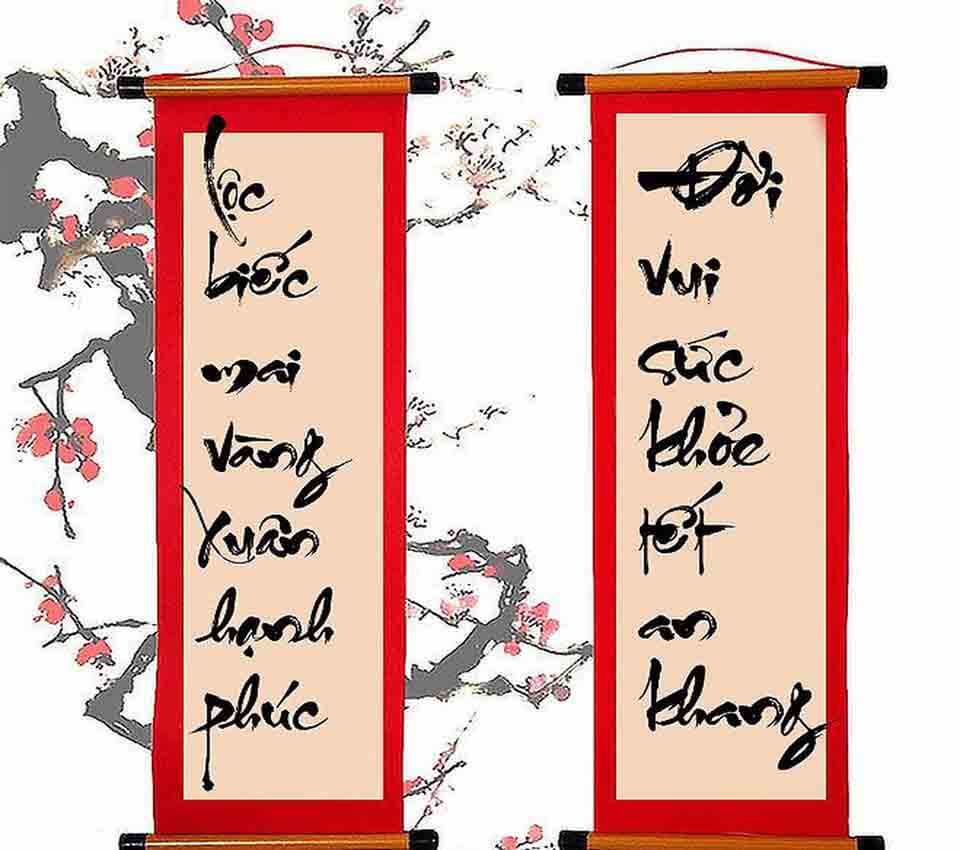 Lộc
biếc
mai
vàng
Xuân
hạnh
phúc
Đời
vui
sức
khỏe
tết
an
khang